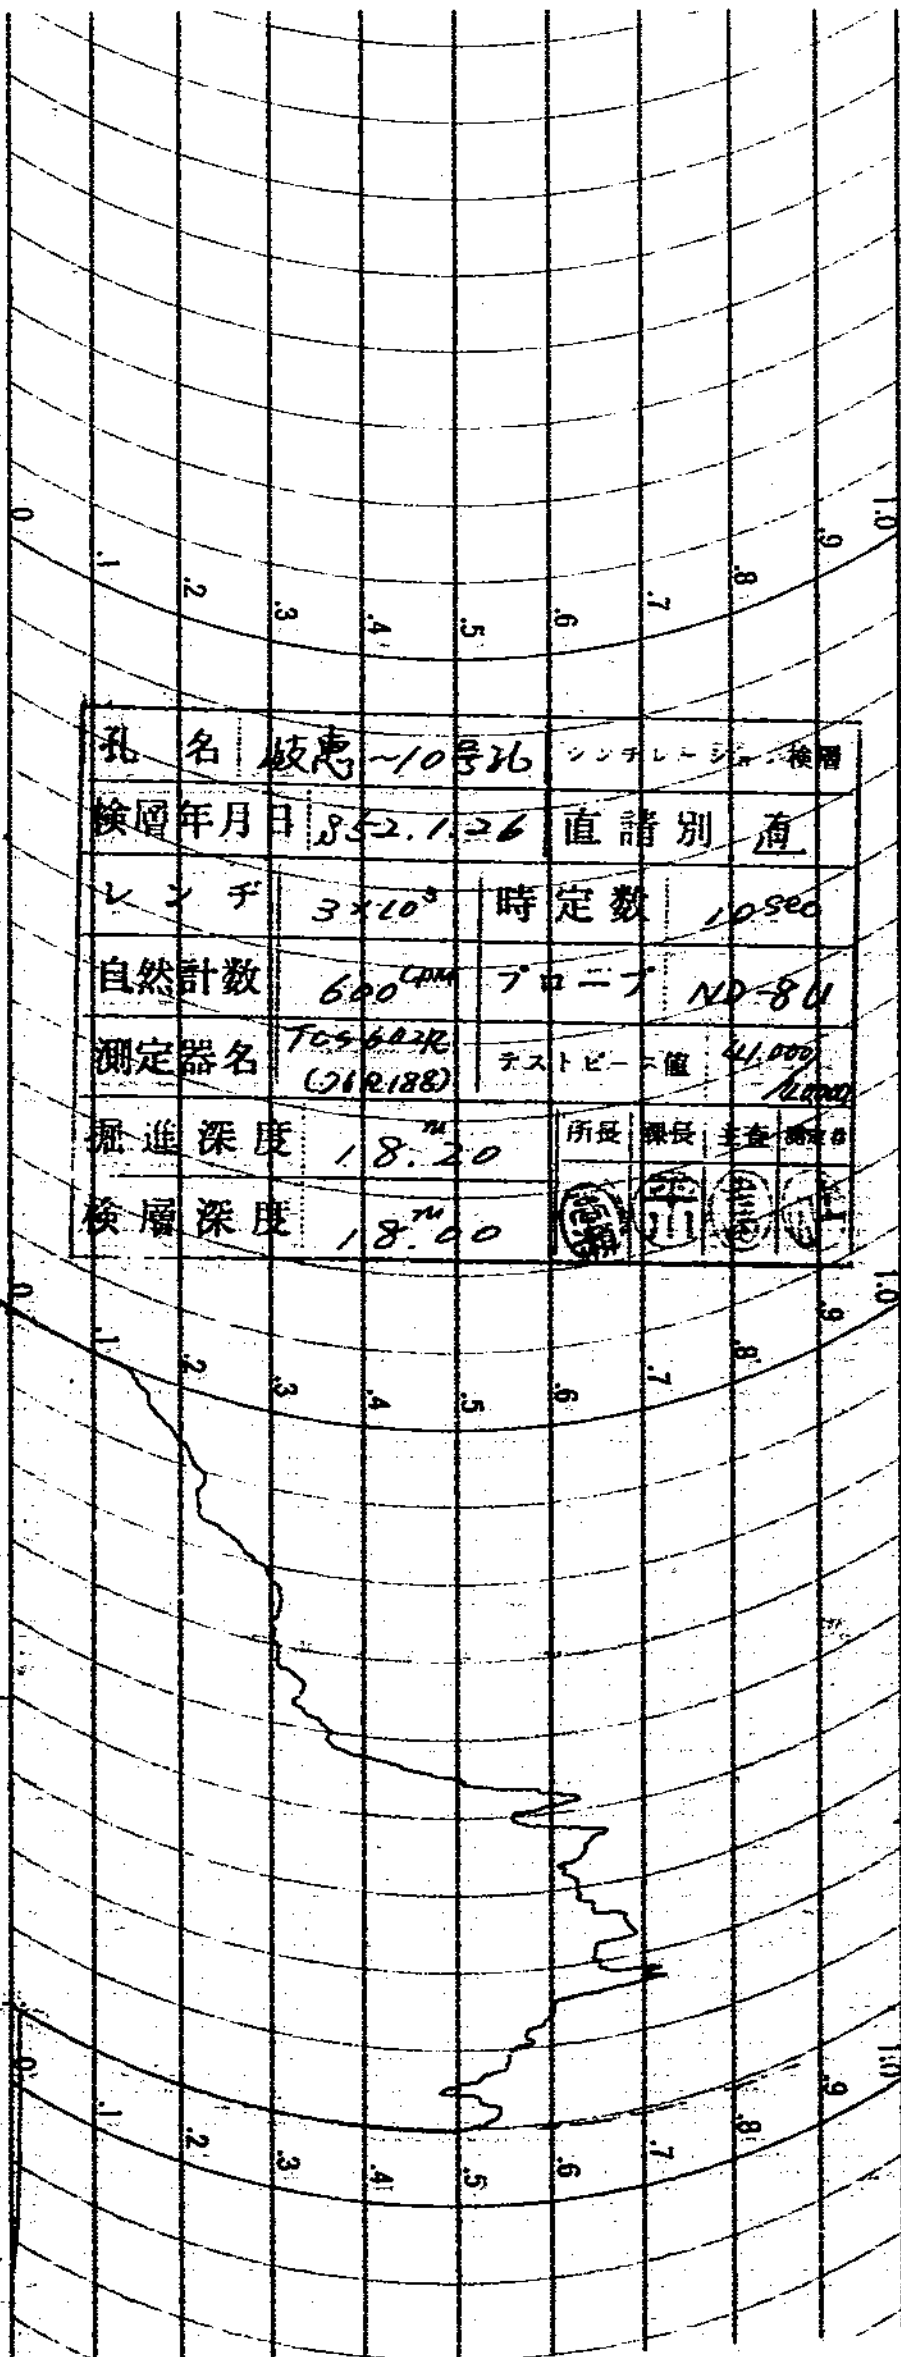 0 .1 .2 .3 .4 .5 .6 .7 .8 .9 1.0
孔名 岐恵~10号孔 シンチレーション検層
検層年月日 S52.1.26 直請別 直
レンヂ 3×10³ 時定数 10sec
自然計数 600CPM プローブ ND-8U
測定器名 TCS-602R テストピース値 41.000
掘進深度 18.20m 所長 課長 主査 測定者
検層深度 18.00m
0 .1 .2 .3 .4 .5 .6 .7 .8 .9 1.0
0 .1 .2 .3 .4 .5 .6 .7 .8 .9 1.0